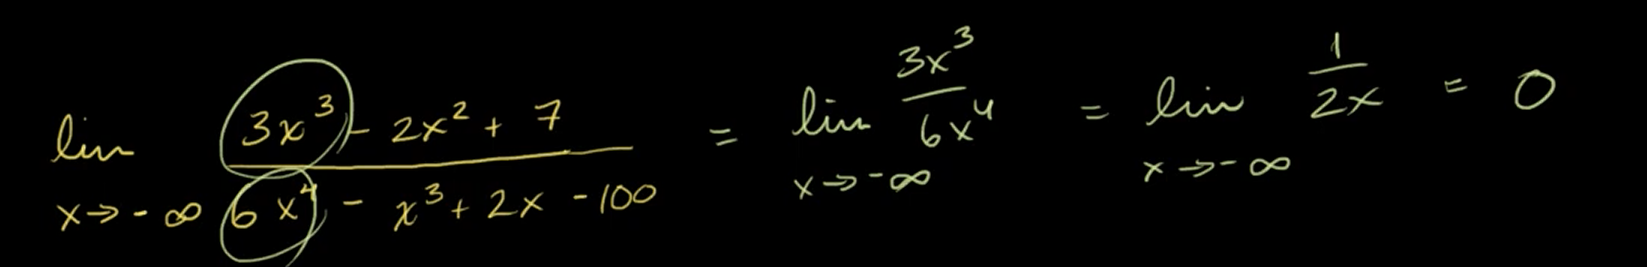 lim x→-∞ (3x³ - 2x² + 7)/(6x⁴ - x³ + 2x - 100) = lim x→-∞ 3x³/6x⁴ = lim x→-∞ 1/2x = 0